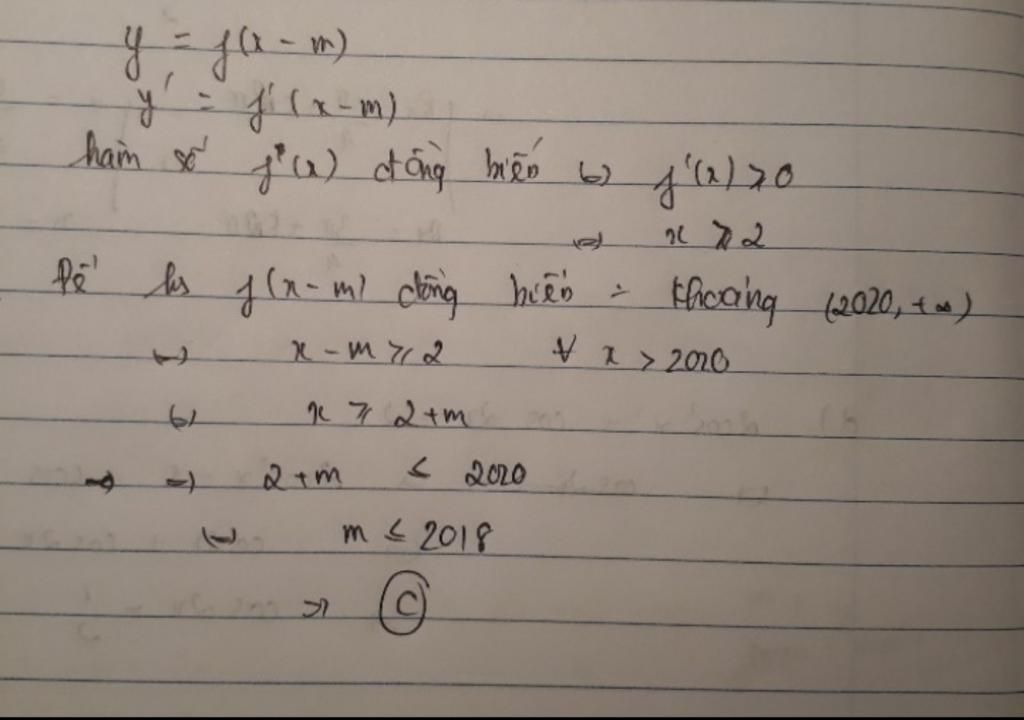 y = f(x - m)
y' = f'(x - m)
hàm số f'(x) đồng biến (=) f'(x) ≥ 0
(=) x ≥ 2
Để hs f(x - m) đồng biến ÷ khoảng (2020, +∞)
(=) x - m ≥ 2 ∀ x > 2020
(=) x ≥ 2 + m
=) =) 2 + m ≤ 2020
(=) m ≤ 2018
=) C